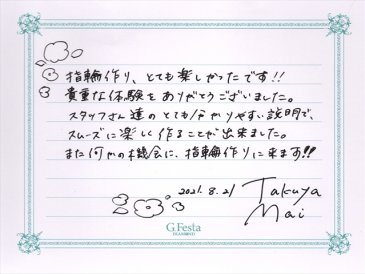 指輪作り、とても楽しかったです!!
貴重な体験をありがとうございました。
スタッフさん達のとても分かりやすい説明で、
スムーズに楽しく作ることが出来ました。
また何かの機会に、指輪作りに来ます!!
2021.8.21
Takuya
Mai
G.Festa